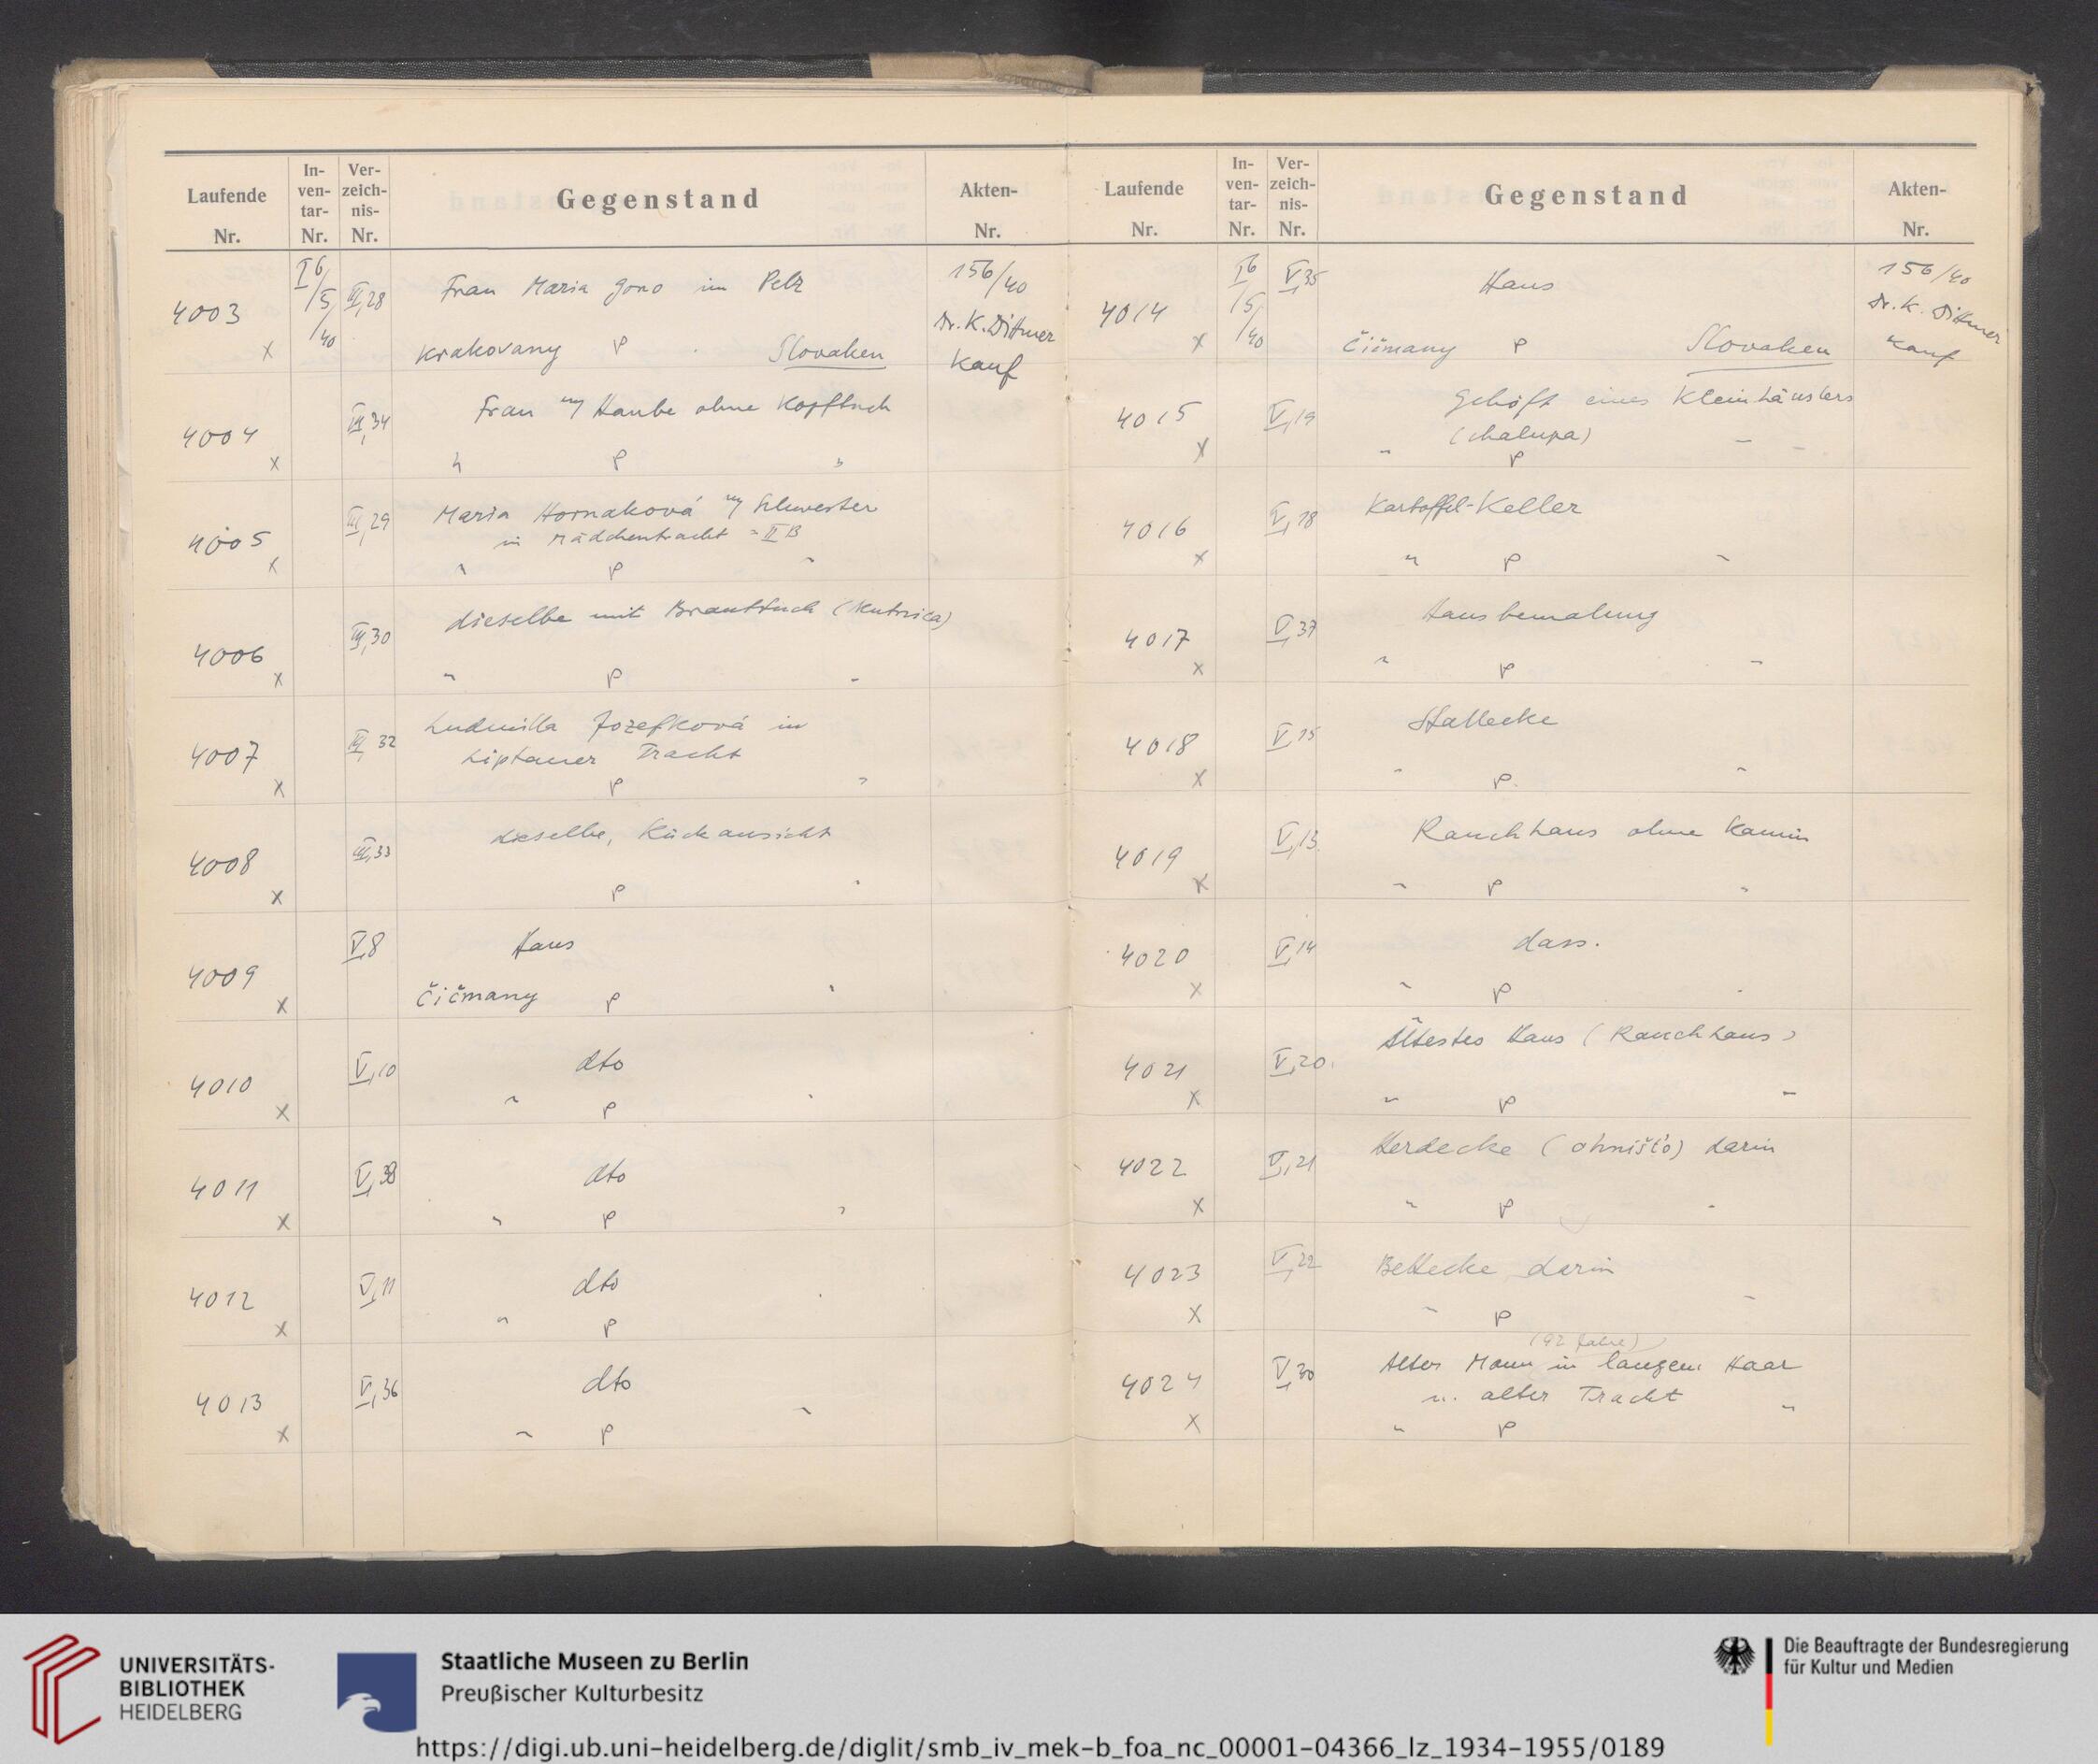 Laufende Nr. In-ven-tar-Nr. Ver-zeich-nis-Nr. Gegenstand Akten-Nr.
4003 x I 6/5/40 III,28 Frau Maria Gono im Pelz 156/40
Krakovany P Slovaken Dr. K. Dittmer Kauf
4004 x III,34 Frau m/ Haube ohne Kopftuch
" P "
4005 x III,29 Maria Hornaková m/ Schwester
in Mädchentracht = II B
" P "
4006 x III,30 dieselbe mit Brauttuch
" P "
4007 x III,32 Ludmilla Jozefková in
Liptauer Tracht
P "
4008 x III,33 dieselbe, Rückansicht
P "
4009 x V,8 Haus
Čičmany P "
4010 x V,10 dto
" P "
4011 x V,38 dto
" P "
4012 x V,11 dto
" P "
4013 x V,36 dto
" P "
Laufende Nr. In-ven-tar-Nr. Ver-zeich-nis-Nr. Gegenstand Akten-Nr.
4014 x I 6/5/40 V,35 Haus 156/40
Čičmany P Slovaken Dr. K. Dittmer Kauf
4015 x V,19 Gehöft eines Kleinhäuslers
(chalupa)
" P "
4016 x V,18 Kartoffel-Keller
" P "
4017 x V,37 Hausbemalung
" P "
4018 x V,15 Stallecke
" P "
4019 x V,13 Rauchhaus ohne Kamin
" P "
4020 x V,14 dass.
" P "
4021 x V,20. Ältestes Haus (Rauchhaus)
" P "
4022 x V,21 Herdecke (ohništo) darin
" P "
4023 x V,22 Bettecke darin
" P "
(92 Jahre)
4024 x V,30 Alter Mann in langem Haar
u. alter Tracht
" P "
UNIVERSITÄTS-
BIBLIOTHEK
HEIDELBERG
Staatliche Museen zu Berlin
Preußischer Kulturbesitz
Die Beauftragte der Bundesregierung
für Kultur und Medien
https://digi.ub.uni-heidelberg.de/diglit/smb_iv_mek-b_foa_nc_00001-04366_lz_1934-1955/0189